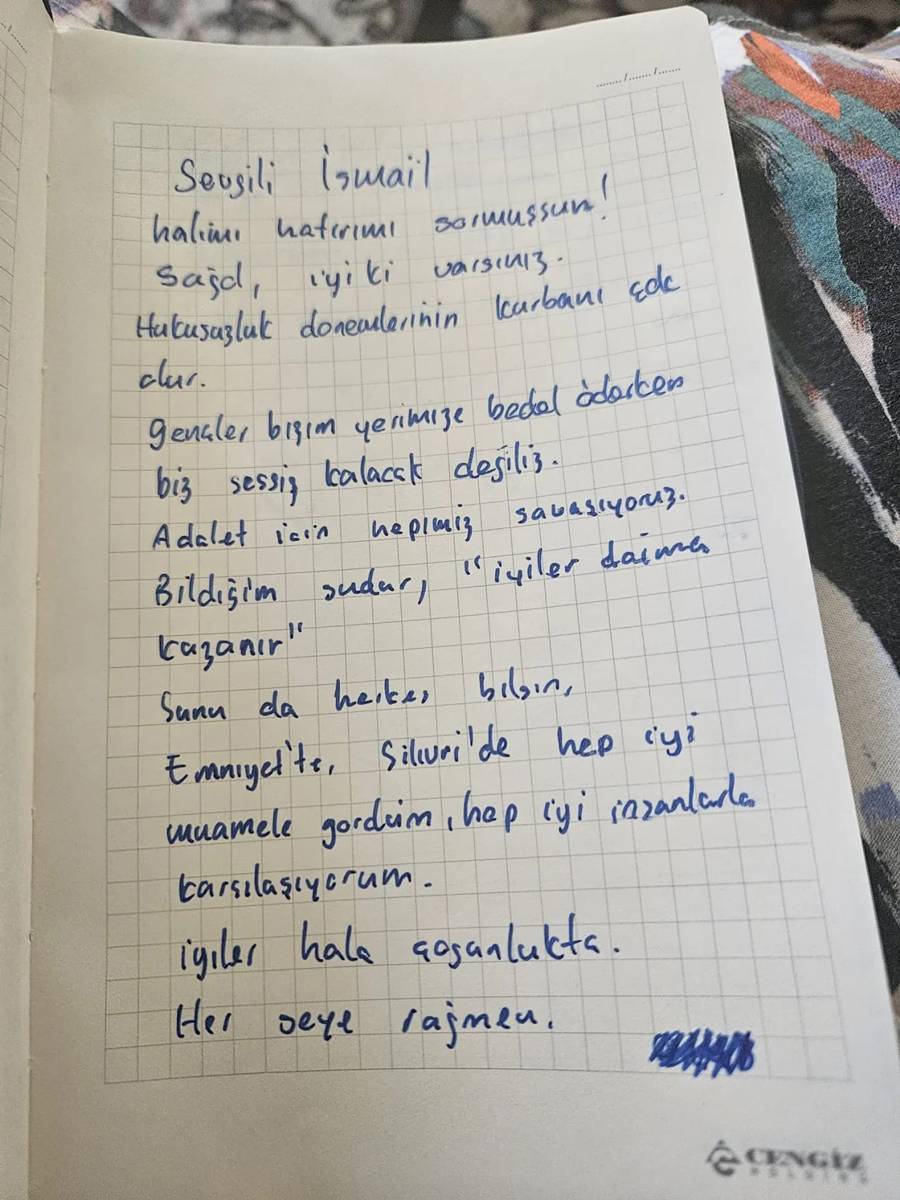 ....../....../......
Sevgili İsmail
halimi hatırımı sormuşsun!
Sağol, iyi ki varsınız.
Hukusuzluk donemlerinin kurbanı çok
olur.
gençler bizim yerimize bedel öderken
biz sessiz kalacak değiliz.
Adalet icin hepimiz savaşıyoruz.
Bildiğim sudur, "iyiler daima
kazanır"
Sunu da herkes bilsin,
Emniyet'te, Silivri'de hep iyi
muamele gordüm, hep iyi insanlarla
karsılaşıyorum.
iyiler hala çoğunlukta.
Her seye rağmen.
CENGİZ
HOLDİNG